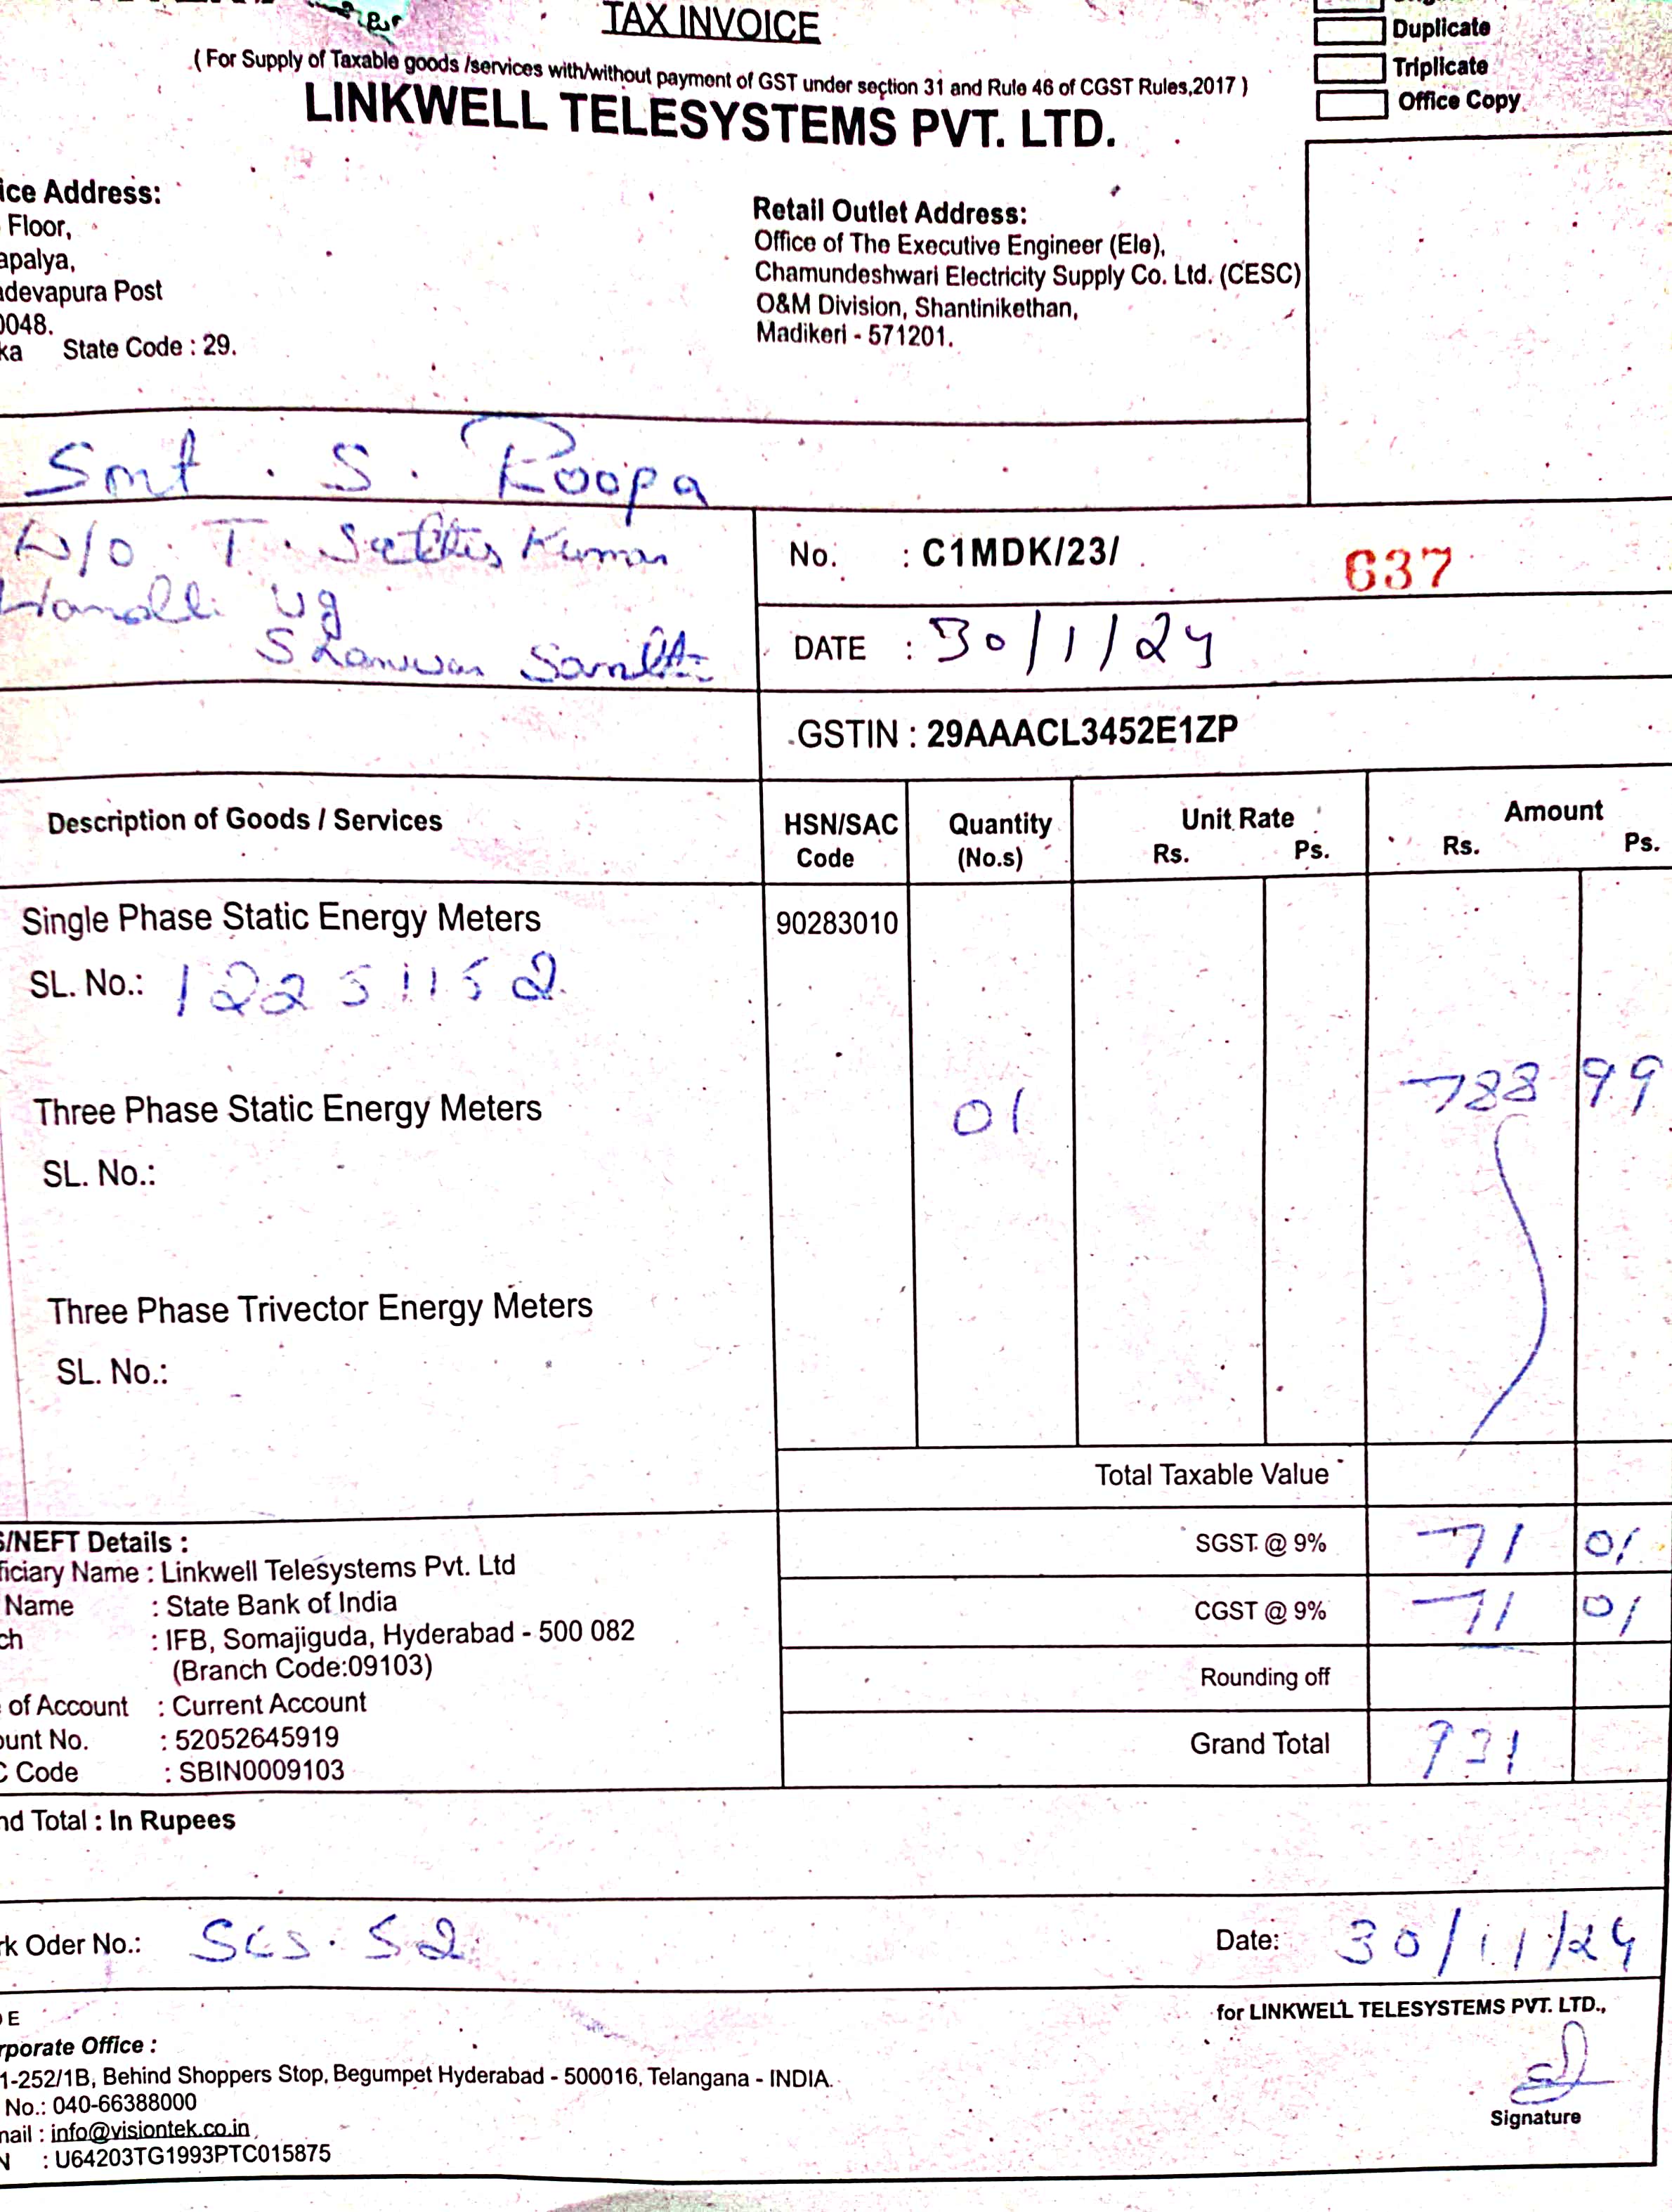 TAX INVOICE
( For Supply of Taxable goods /services with/without payment of GST under section 31 and Rule 46 of CGST Rules,2017 )
LINKWELL TELESYSTEMS PVT. LTD.
Duplicate
Triplicate
Office Copy
ice Address:
Floor,
apalya,
adevapura Post
0048.
ka State Code : 29.
Retail Outlet Address:
Office of The Executive Engineer (Ele),
Chamundeshwari Electricity Supply Co. Ltd. (CESC)
O&M Division, Shantinikethan,
Madikeri - 571201.
Smt. S. Roopa
W/o. T. Kumar
No. : C1MDK/23/ 637
DATE : 30/1/24
GSTIN : 29AAACL3452E1ZP
Description of Goods / Services
HSN/SAC Code
Quantity (No.s)
Unit Rate Rs. Ps.
Amount Rs. Ps.
Single Phase Static Energy Meters 90283010
SL. No.: 12251152
Three Phase Static Energy Meters 01 788 99
SL. No.:
Three Phase Trivector Energy Meters
SL. No.:
Total Taxable Value
SGST @ 9% 71 01
CGST @ 9% 71 01
Rounding off
Grand Total 931
S/NEFT Details :
ficiary Name : Linkwell Telesystems Pvt. Ltd
Name : State Bank of India
ch : IFB, Somajiguda, Hyderabad - 500 082
(Branch Code:09103)
of Account : Current Account
ount No. : 52052645919
C Code : SBIN0009103
nd Total : In Rupees
rk Oder No.: SCS. 52
Date: 30/11/24
DE
rporate Office :
1-252/1B, Behind Shoppers Stop, Begumpet Hyderabad - 500016, Telangana - INDIA.
No.: 040-66388000
mail : info@visiontek.co.in
N : U64203TG1993PTC015875
for LINKWELL TELESYSTEMS PVT. LTD.,
Signature